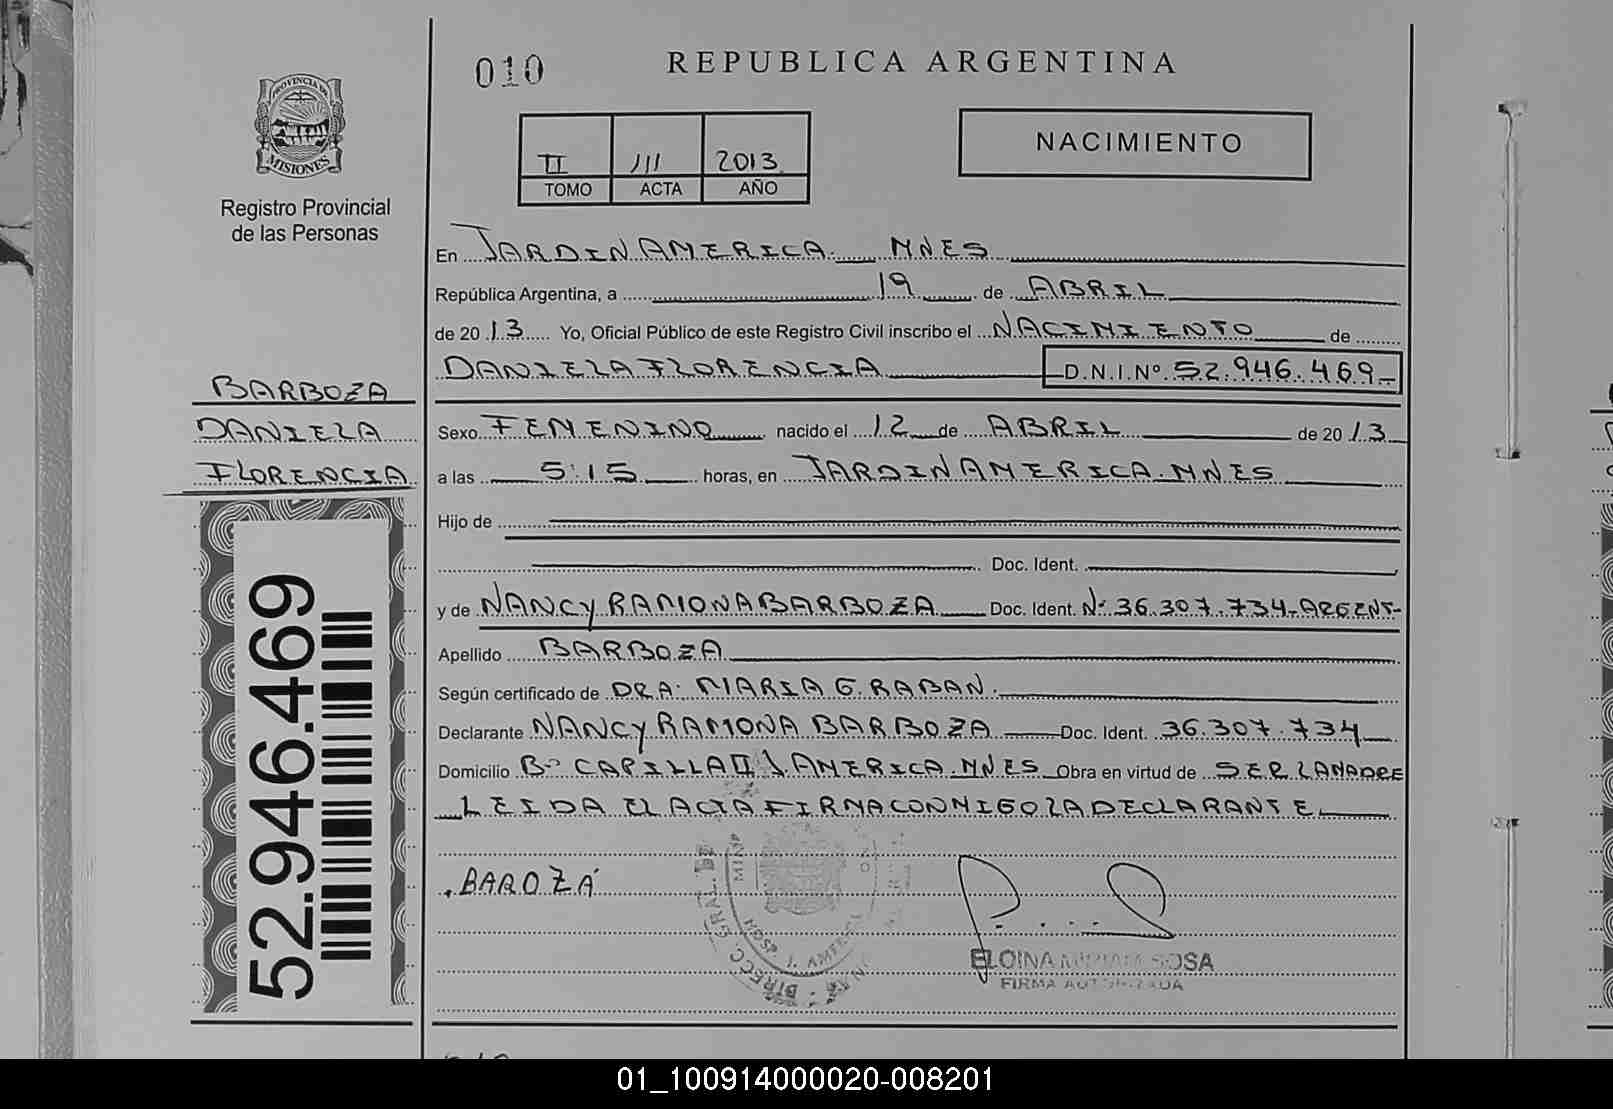 010
REPUBLICA ARGENTINA
PROVINCIA DE
MISIONES
Registro Provincial
de las Personas
II 111 2013
TOMO ACTA AÑO
NACIMIENTO
En JARDIN AMERICA. MNES
República Argentina, a 19 de ABRIL
de 2013 Yo, Oficial Público de este Registro Civil inscribo el NACIMIENTO de
DANIELA FLORENCIA D.N.I.Nº 52.946.469
BARBOZA
DANIELA
FLORENCIA
Sexo FEMENINO nacido el 12 de ABRIL de 2013
a las 5:15 horas, en JARDIN AMERICA. MNES
Hijo de
Doc. Ident.
y de NANCY RAMONA BARBOZA Doc. Ident. Nº 36.307.734-ARGENT-
Apellido BARBOZA
Según certificado de DRA. MARIA G. RABAN.
Declarante NANCY RAMONA BARBOZA Doc. Ident. 36.307.734
Domicilio Bº CAPILLA II J. AMERICA. MNES Obra en virtud de SER LA MADRE
LEIDA EL ACTA FIRMA CONMIGO LA DECLARANTE
52.946.469
BAROZA
DIRECC. GRAL. DE
HOSP. J. AMERICA
ELOINA MIRIAM SOSA
FIRMA AUTORIZADA
01_100914000020-008201